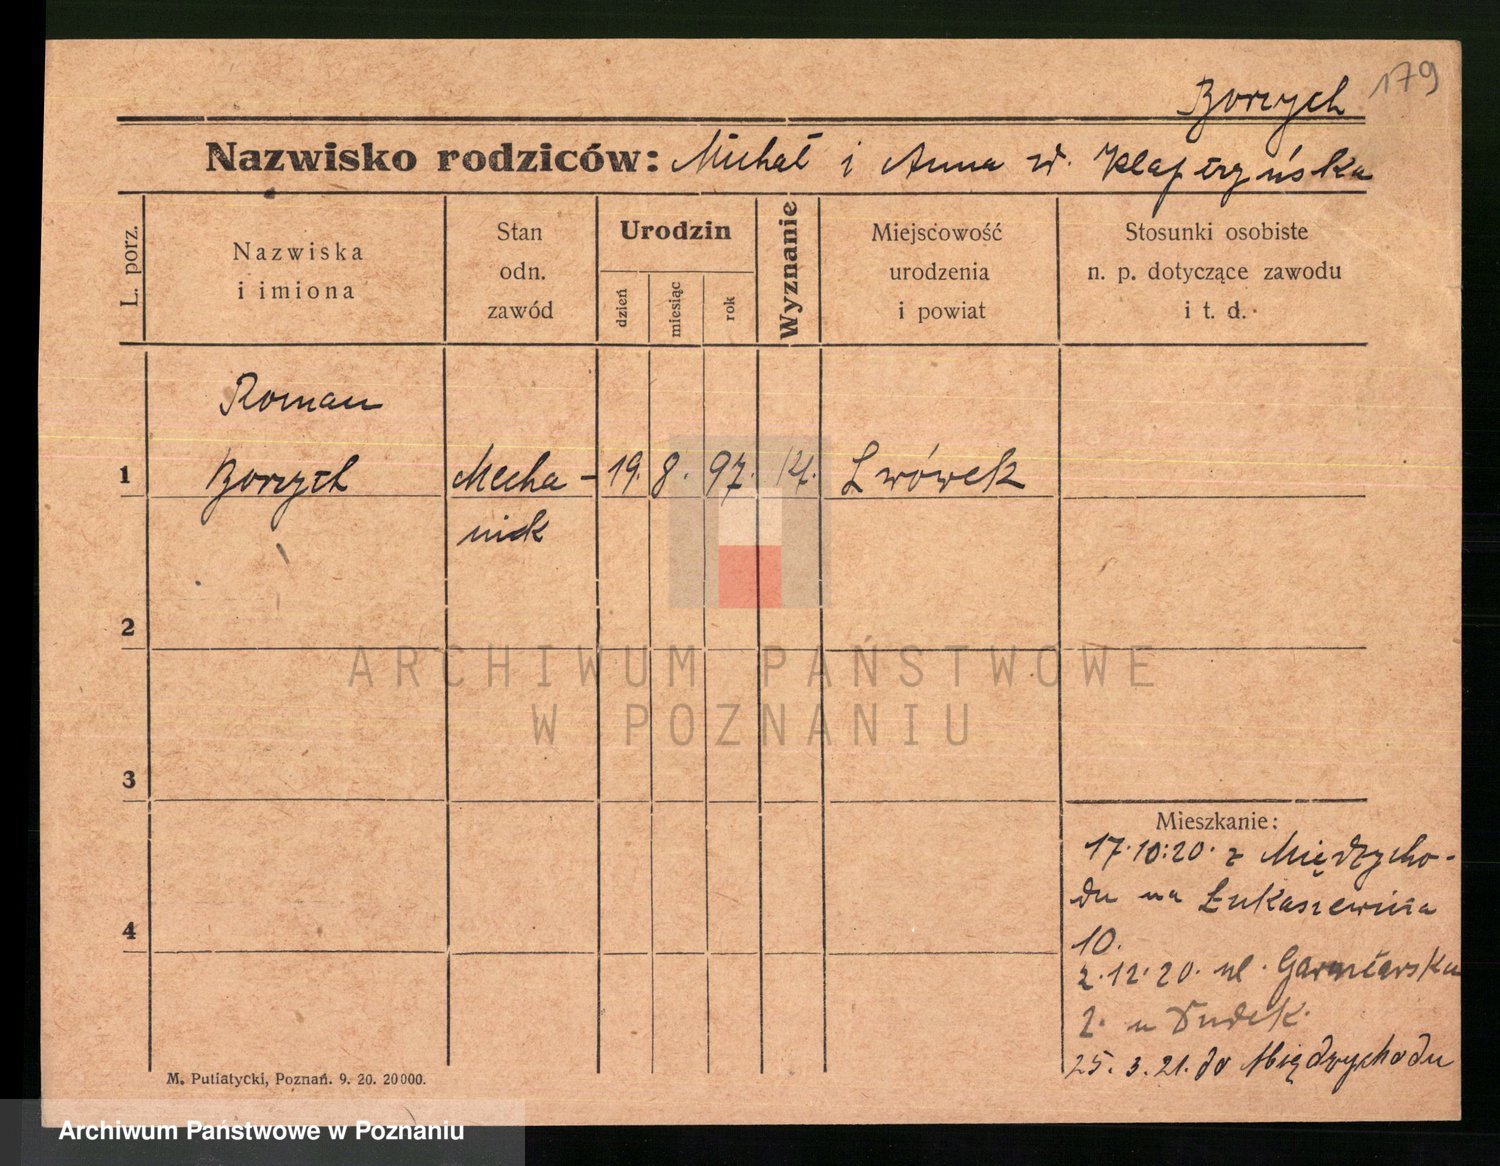 179
Borzych
Nazwisko rodziców: Michał i Anna z d. Klapczyńska
L. porz.
Nazwiska
i imiona
Stan
odn.
zawód
Urodzin
dzień
miesiąc
rok
Wyznanie
Miejscowość
urodzenia
i powiat
Stosunki osobiste
n. p. dotyczące zawodu
i t. d.
Roman
1 Borzych Mecha- 19. 8. 97. kt. Lwówek
nick
2
3
4
Mieszkanie:
17.10.20. z Międzycho-
du na Łukaszewicza
10.
2.12.20. ul. Garncarska
2. u Dudek.
25. 3. 21. do Międzychodu
M. Putiatycki, Poznań. 9. 20. 20000.
ARCHIWUM PAŃSTWOWE
W POZNANIU
Archiwum Państwowe w Poznaniu